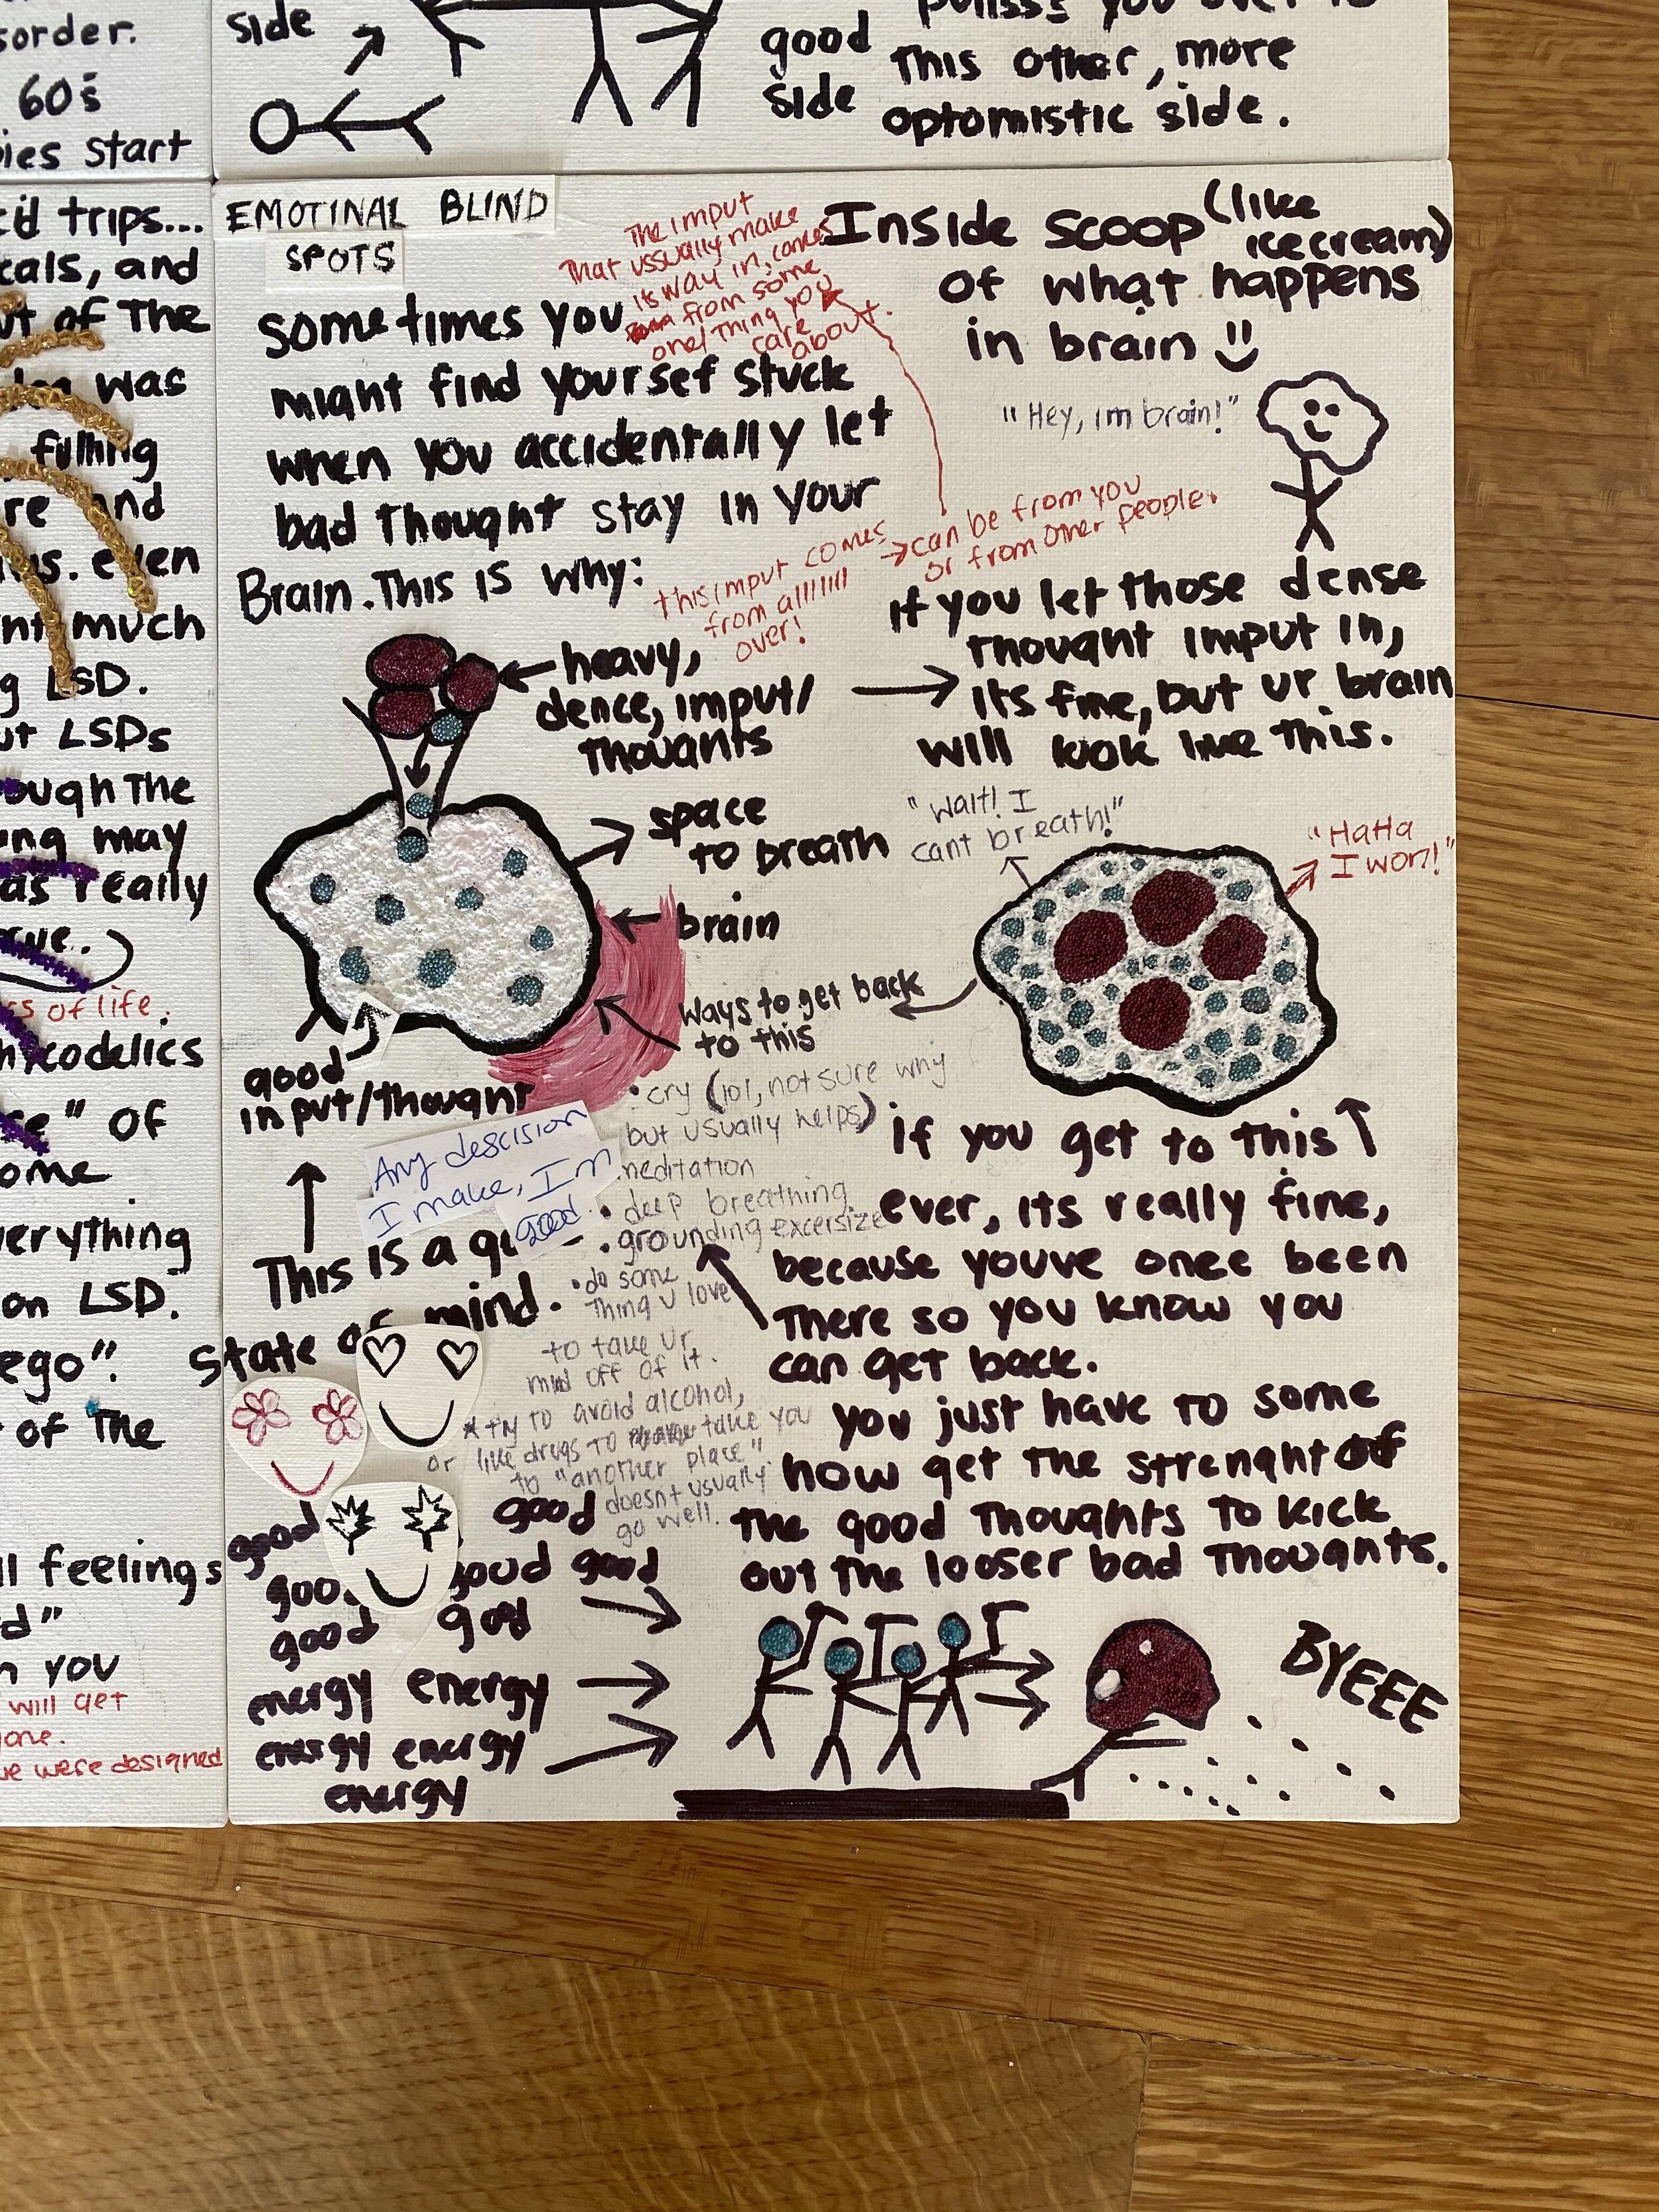 sorder.
60s
ies start
side
good
side
this other, more
optomistic side.
trips...
cals, and
of The
was
filling
and
even
much
LSD.
LSDs
ough The
may
really
s of life.
codelics
" of
ome
verything
on LSD.
ego".
of the
feelings
d"
you
will get
one.
we were designed
EMOTINAL BLIND
SPOTS
sometimes you
might find yoursef stuck
when you accidentally let
bad thought stay in your
Brain. This is why:
The imput
That ussually make
its way in, comes
from some
one/thing you
care
about.
Inside scoop (like
icecream)
of what happens
in brain
"Hey, im brain!"
this imput comes
from allllllll
over!
can be from you
or from other people.
heavy,
dence, imput/
thoughts
if you let those dense
thought imput in,
its fine, but ur brain
will look like this.
space
to breath
brain
"wait! I
cant breath!"
"HaHa
I won!"
good
input/thought
ways to get back
to this
• cry (lol, not sure why
but usually helps)
meditation
• deep breathing
• grounding excersize
• do some
thing u love
to take ur
mind off of it.
* try to avoid alcohol,
or like drugs to take you
to "another place".
doesnt usually
go well.
Any descision
I make, Im
good.
This is a
state of mind.
if you get to this
ever, its really fine,
because youve once been
there so you know you
can get back.
you just have to some
how get the strenght of
the good thoughts to kick
out the looser bad thoughts.
good good
good good good
good good
energy energy
energy energy
energy
BYEEE